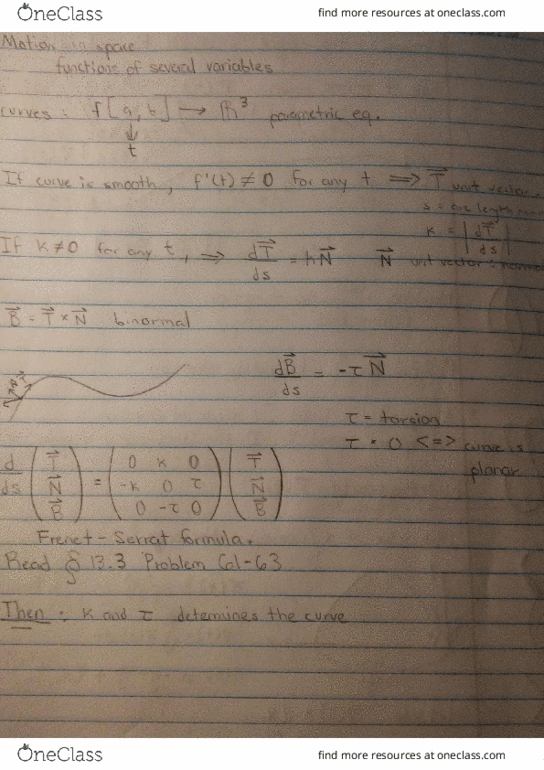 OneClass find more resources at oneclass.com
Motion in space
functions of several variables
curves : f[a, b] → ℝ³ parametric eq.
↓
t
If curve is smooth, f'(t) ≠ 0 for any t ⟹ T⃗ unit vector.
s = arc length
κ = |dT⃗/ds|
If κ≠0 for any t, ⟹ dT⃗/ds = κN⃗ N⃗ unit vector normal
B⃗ = T⃗ × N⃗ binormal
dB⃗/ds = -τN⃗
τ = torsion
τ = 0 <=> curve is
planar
d/ds (T⃗ N⃗ B⃗) = (0 κ 0 -κ 0 τ 0 -τ 0) (T⃗ N⃗ B⃗)
Frenet-Serrat formula.
Read § 13.3 Problem 61-63
Then : κ and τ determines the curve
OneClass find more resources at oneclass.com